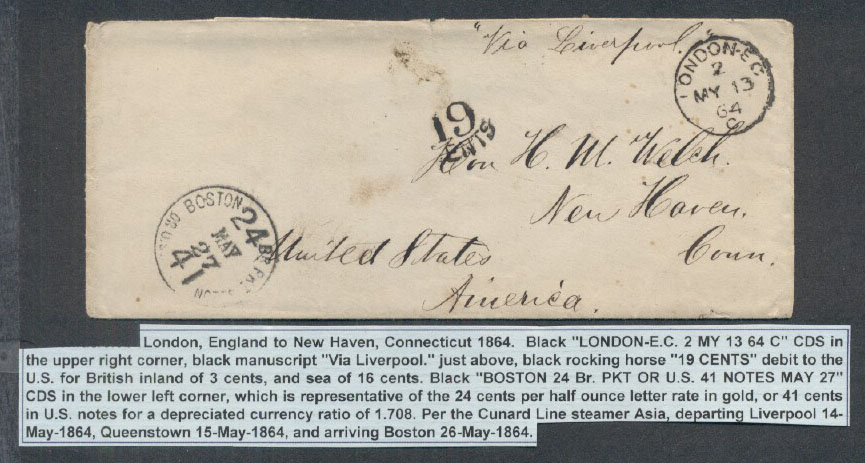 "Via Liverpool."
LONDON-E.C.
2
MY 13
64
C
19
CENTS
Hon H. M. Welch.
New Haven.
Conn.
United States
America.
BOSTON
24
BR. PKT.
MAY
27
41
London, England to New Haven, Connecticut 1864. Black "LONDON-E.C. 2 MY 13 64 C" CDS in
the upper right corner, black manuscript "Via Liverpool." just above, black rocking horse "19 CENTS" debit to the
U.S. for British inland of 3 cents, and sea of 16 cents. Black "BOSTON 24 Br. PKT OR U.S. 41 NOTES MAY 27"
CDS in the lower left corner, which is representative of the 24 cents per half ounce letter rate in gold, or 41 cents
in U.S. notes for a depreciated currency ratio of 1.708. Per the Cunard Line steamer Asia, departing Liverpool 14-
May-1864, Queenstown 15-May-1864, and arriving Boston 26-May-1864.